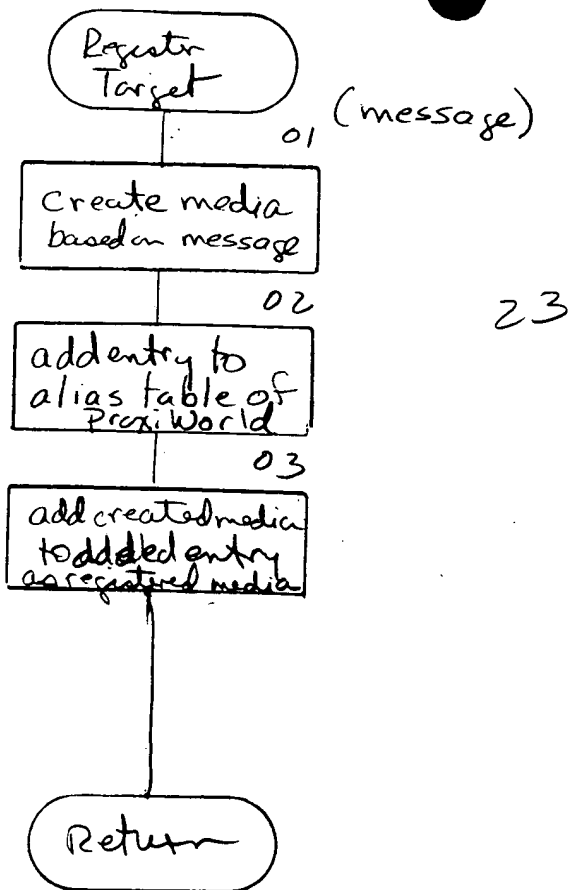 Register
Target
(message)
01
create media
based on message
02
23
add entry to
alias table of
ProxiWorld
03
add created media
to added entry
as registered media
Return